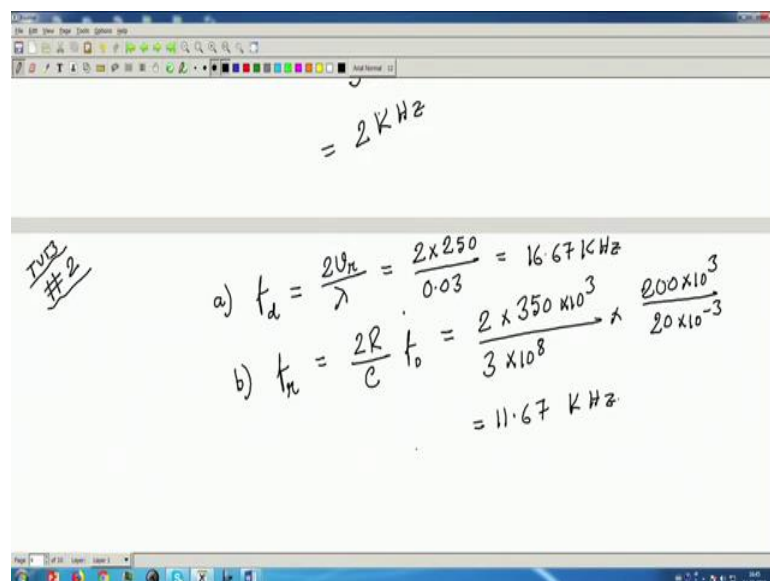 File Edit View Page Tools Options Help
Arial Normal 12
= 2 KHz
TUT3
#2
a) f_d = 2v_r/λ = 2 × 250/0.03 = 16.67 KHz
b) f_r = 2R/C f_0 = 2 × 350 × 10^3/3 × 10^8 × 200×10^3/20×10^-3
= 11.67 KHz
of 10 Layer: Layer 1